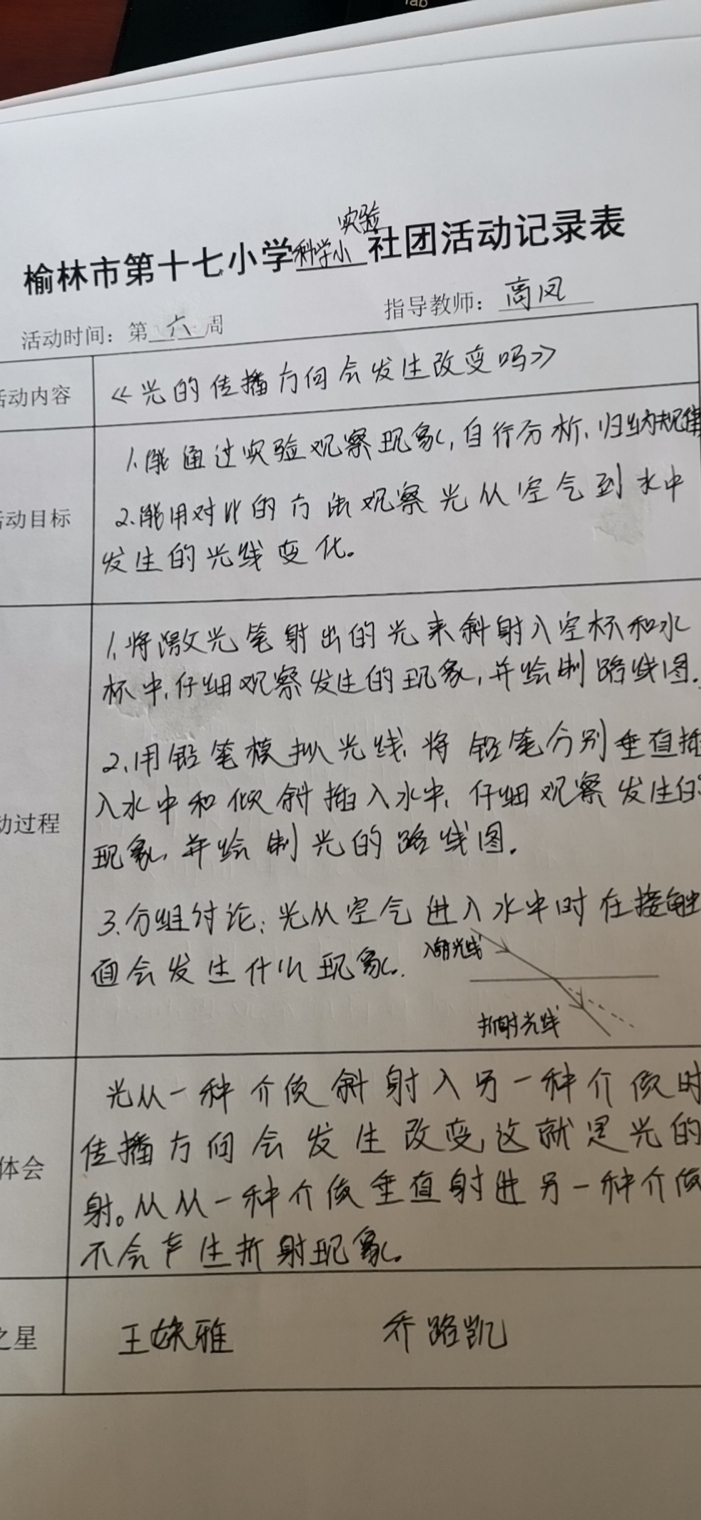 Tab
实验
榆林市第十七小学科学小社团活动记录表
活动时间：第六周 指导教师：高凤
活动内容 《光的传播方向会发生改变吗》
1.能通过实验观察现象，自行分析、归纳规律
动目标 2.能用对比的方法观察光从空气到水中
发生的光线变化。
1.将激光笔射出的光束斜射入空杯和水
杯中，仔细观察发生的现象，并绘制路线图。
2.用铅笔模拟光线，将铅笔分别垂直插
入水中和倾斜插入水中，仔细观察发生的
动过程
现象，并绘制光的路线图。
3.分组讨论：光从空气进入水中时在接触
面会发生什么现象。 入射光线
折射光线
光从一种介质斜射入另一种介质时
传播方向会发生改变，这就是光的
体会
射。从从一种介质垂直射进另一种介质
不会产生折射现象。
之星 王姝雅 乔路凯